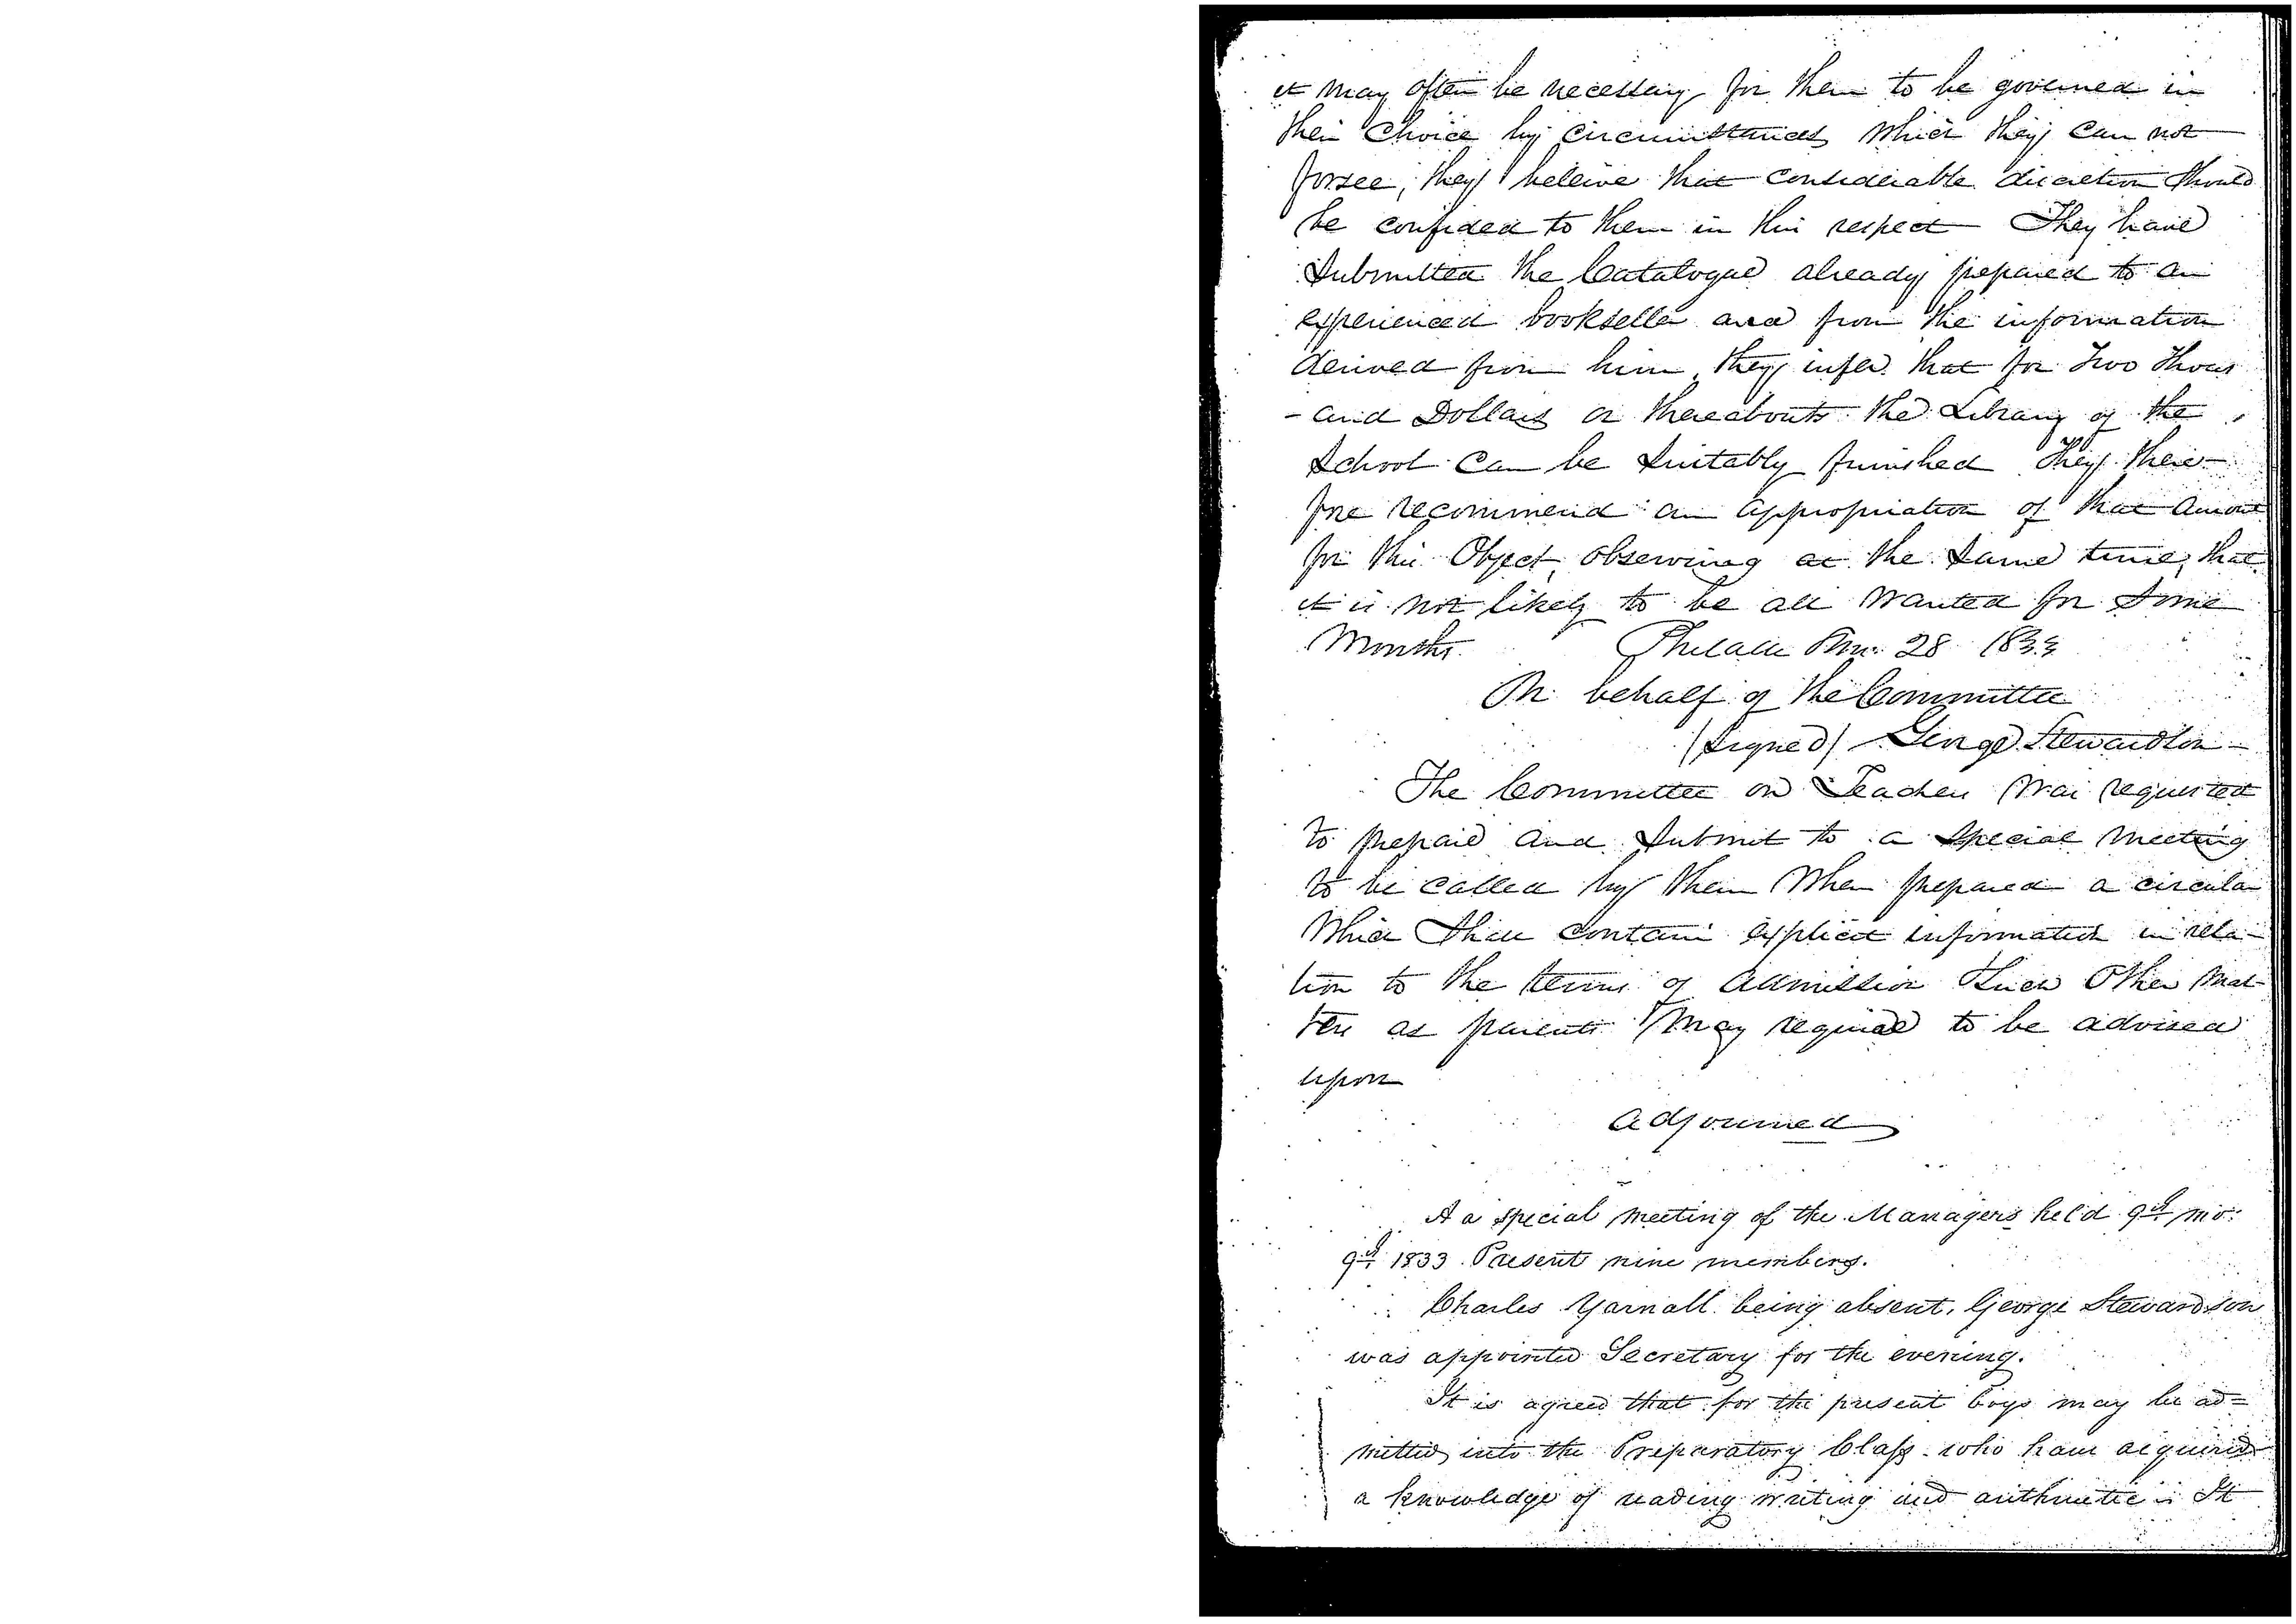 it may often be necessary for them to be governed in
their Choice by circumstances which they can not
forsee, they beleive that considerable discretion should
be confided to them in this respect They have
Submitted the Catalogue already prepared to an
experienced bookseller and from the information
derived from him, they infer that for Two Thous
- and Dollars or thereabouts the Library of the
School can be Suitably furnished They there-
fore recommend an appropriation of that amount
for this Object, observing at the Same time, that
it is not likely to be all wanted for Some
Months. Philada 28 1833
On behalf of the Committee
(Signed) George Stewardson -
The Committee on Teachers was requested
to prepare and Submit to a Special Meeting
to be called by them when prepared a circular
which Shall contain explicit information in rela-
tion to the terms of admission Such Other mat-
ters as parents may require to be advised
upon
adjourned
At a special meeting of the Managers held 9th mo:
9th 1833. Present nine members.
Charles Yarnall being absent, George Stewardson
was appointed Secretary for the evening.
It is agreed that for the present boys may be ad=
mitted into the Preparatory Class who have acquired
a knowledge of reading writing and arithmetic. It